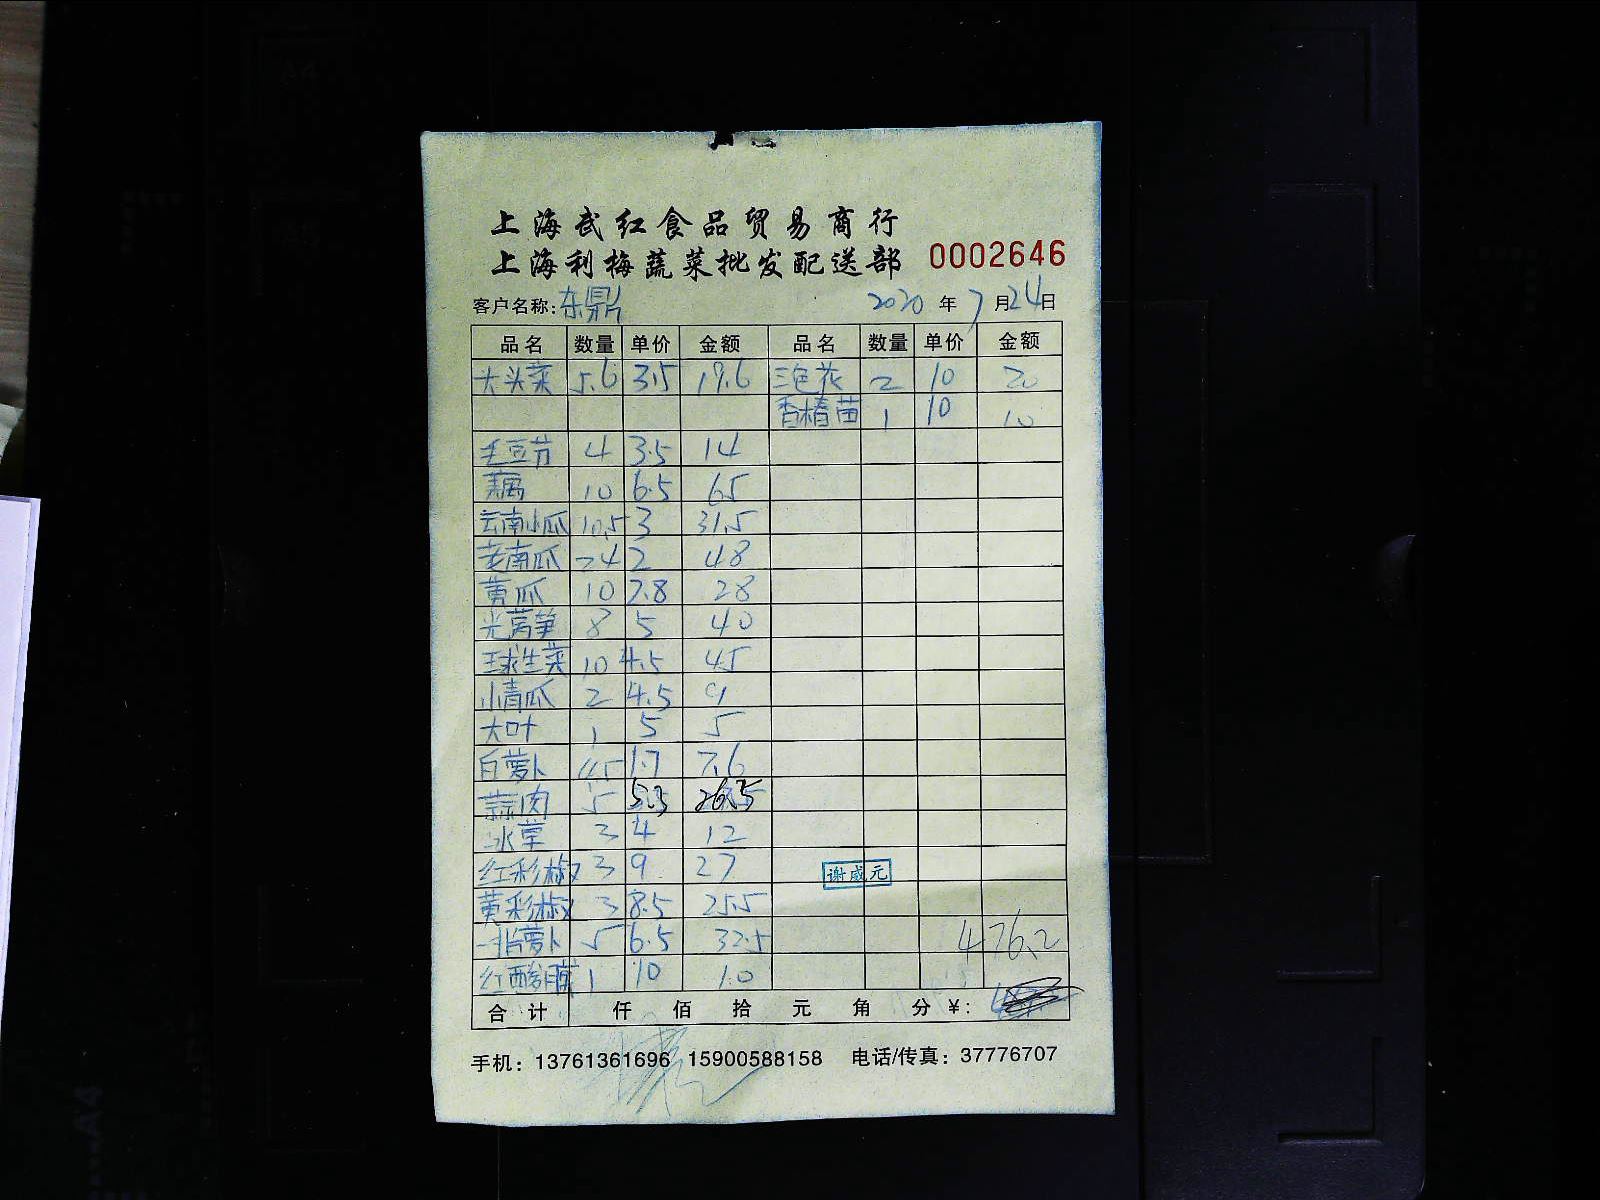 上海武红食品贸易商行
上海利梅蔬菜批发配送部 0002646
客户名称:东鼎 2020年7月24日
品名 数量 单价 金额 品名 数量 单价 金额
大头菜 5.6 3.5 19.6 三色花 2 10 20
香椿苗 1 10 10
毛豆节 4 3.5 14
藕 10 6.5 65
云南小瓜 10.5 3 31.5
老南瓜 24 2 48
黄瓜 10 2.8 28
光莴笋 8 5 40
球生菜 10 4.5 45
小青瓜 2 4.5 9
大叶 1 5 5
白萝卜 4.5 1.7 7.6
蒜肉 5 5.3 26.5
冰草 3 4 12
红彩椒 3 9 27
黄彩椒 3 8.5 25.5
谢威元
萝卜 5 6.5 32.5 476.2
红酸 1 10 10
合计 仟 佰 拾 元 角 分 ¥:
手机:13761361696 15900588158 电话/传真:37776707